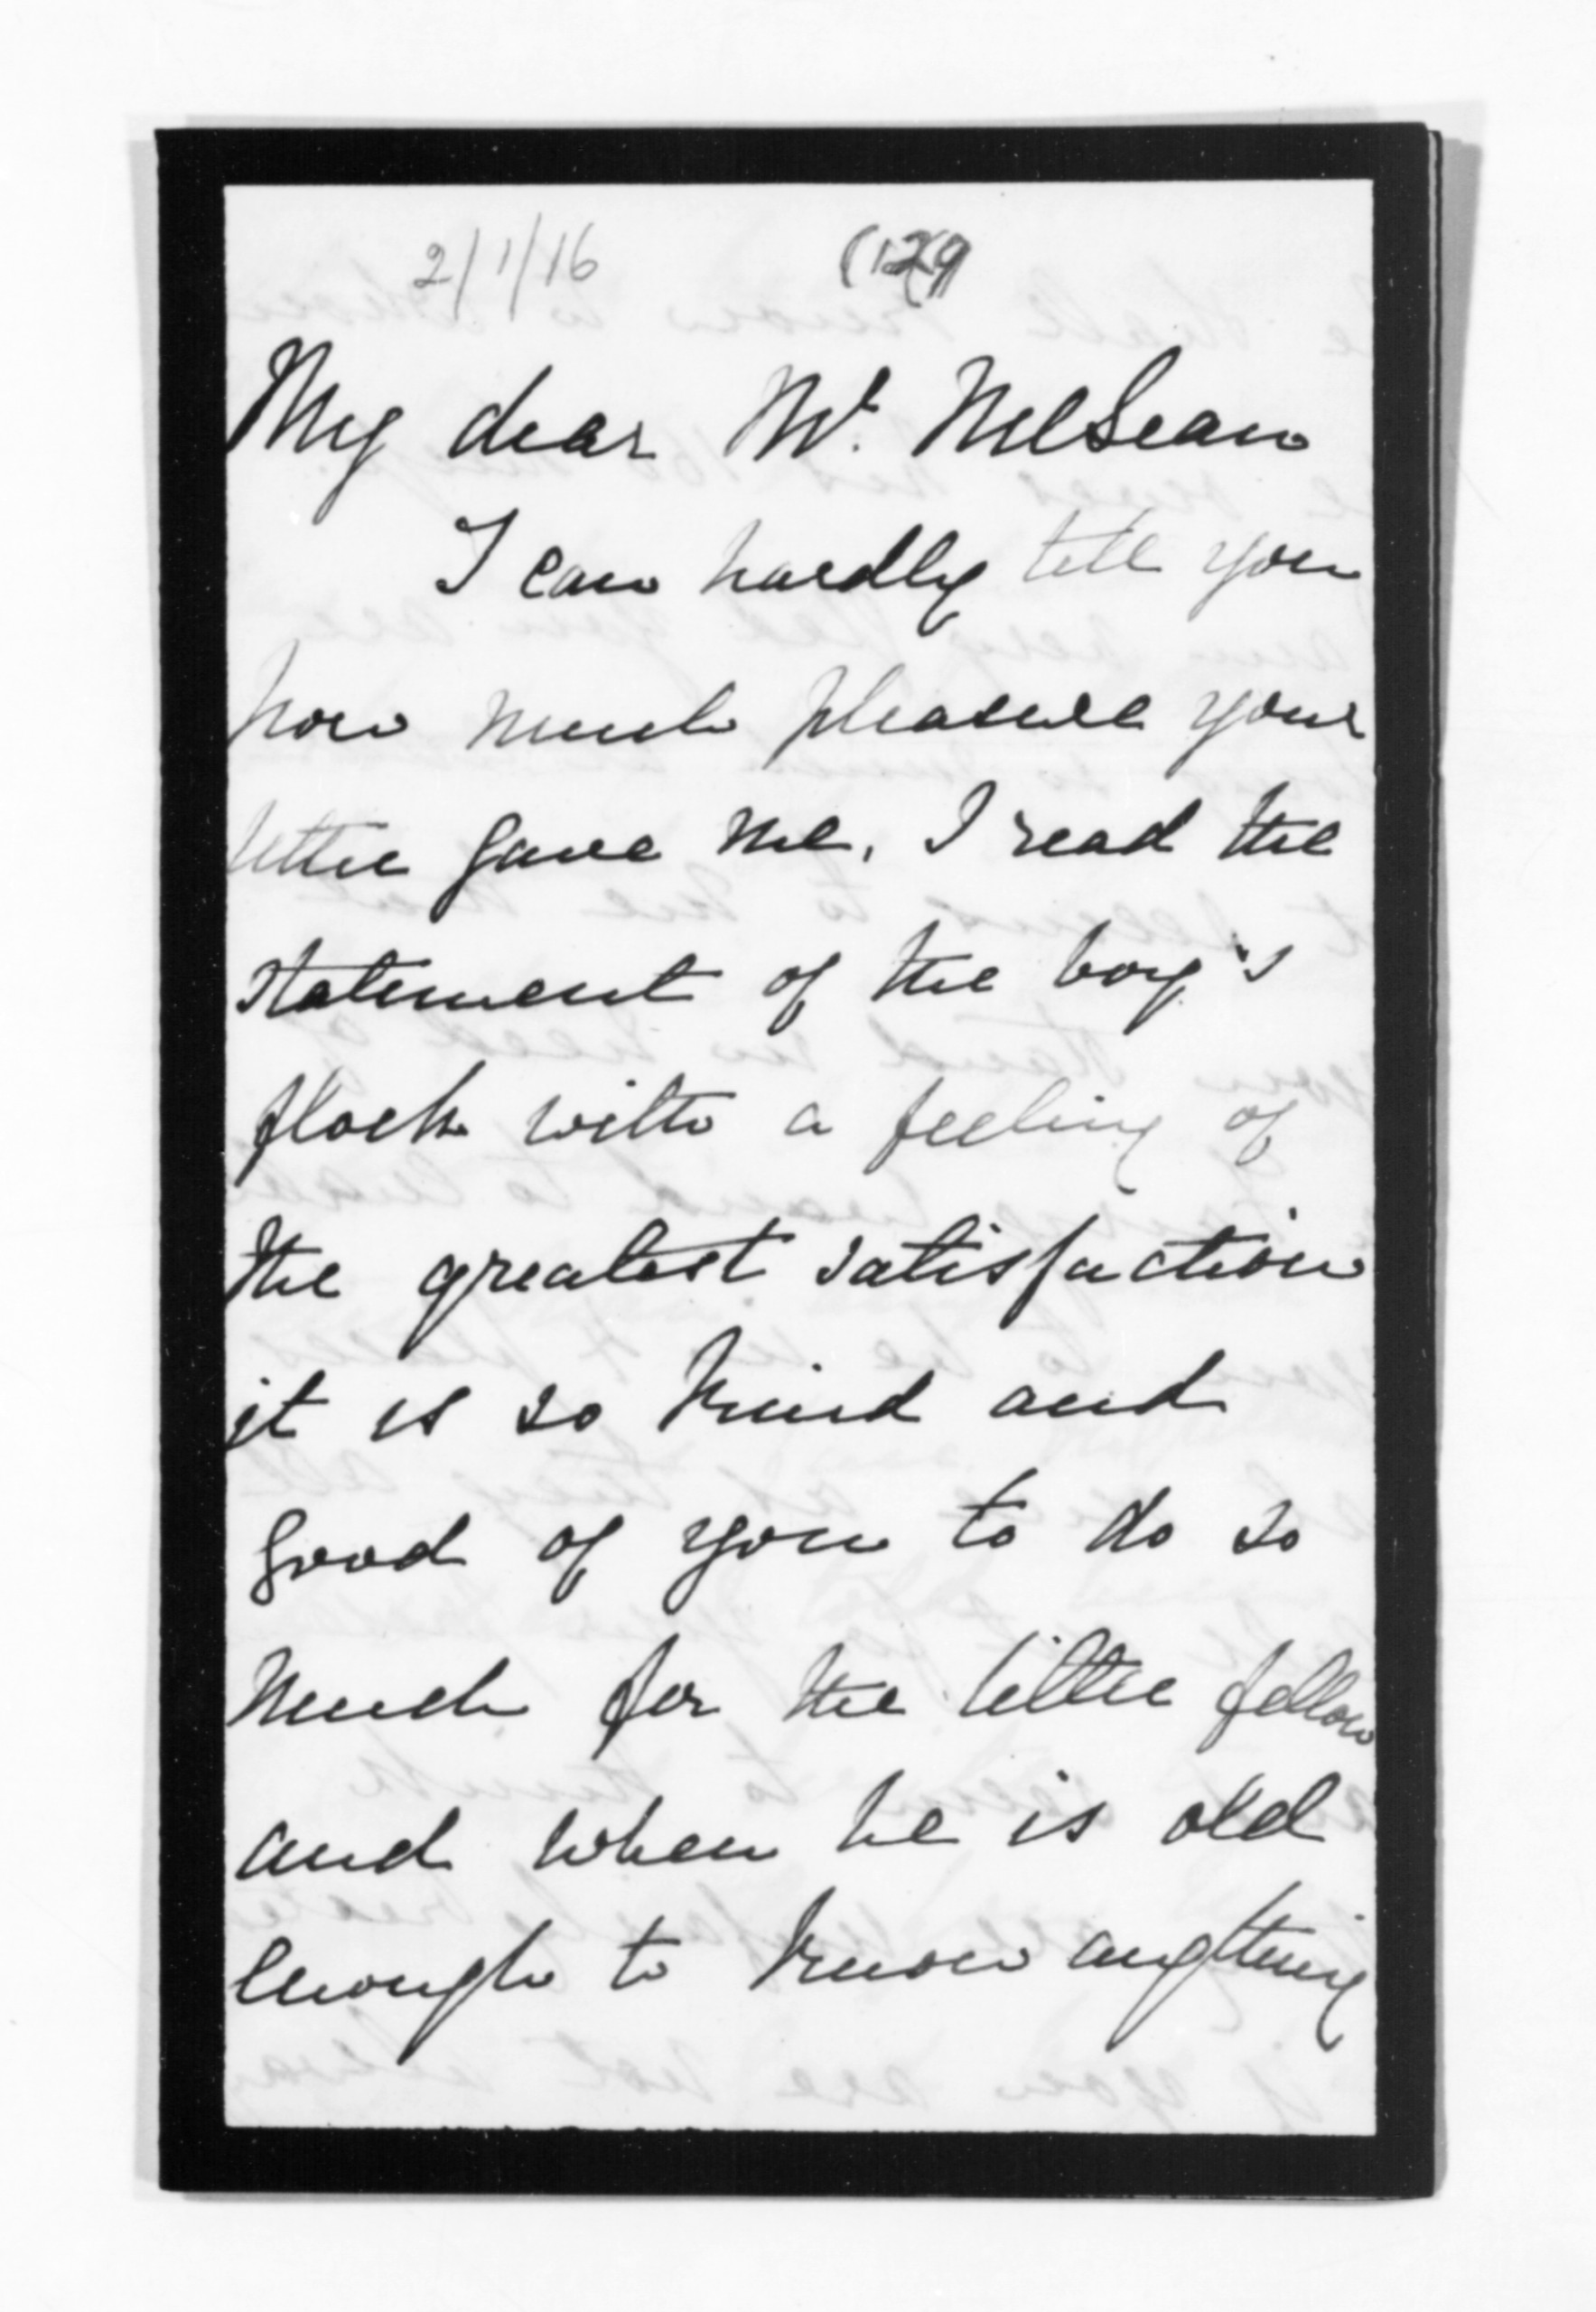 2/1/16
My dear Mr. McLean
I can hardly tell you
how much pleasure your
letter gave me, I read the
statement of the boy's
flock with a feeling of
the greatest satisfaction
it is so kind and
good of you to do so
much for the little fellow
and when he is old
enough to know anything